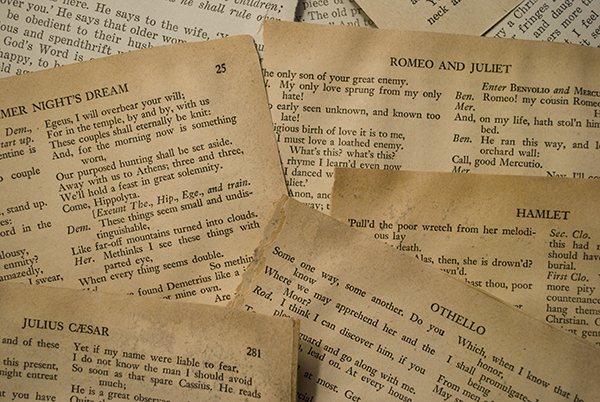 here. He says to the wife, 'Y
over you.' He says that older wom
be obedient to their husb
ous and spendthrift
God's Word is
happy, to b
children;
he shall rule over
piece of
The old
neck a
a Chri
fringes
ers more
d, I feel
25
MER NIGHT'S DREAM
Dem.
Egeus, I will overbear your will;
For in the temple, by and by, with us
These couples shall eternally be knit:
And, for the morning now is something
worn,
Our purposed hunting shall be set aside.
Away with us to Athens; three and three,
We'll hold a feast in great solemnity.
Come, Hippolyta.
[Exeunt The., Hip., Ege., and train.
Dem. These things seem small and undis-
tinguishable,
Like far-off mountains turned into clouds.
Her. Methinks I see these things with
parted eye,
When every thing seems double.
So methin
found Demetrius like a
or mine own.
start up.
entine is
couple
stand up.
ord in the
alousy,
enmity?
amazedly,
I swear,
ROMEO AND JULIET
he only son of your great enemy.
My only love sprung from my only
hate!
early seen unknown, and known too
late!
igious birth of love it is to me,
I must love a loathed enemy.
What's this? what's this?
rhyme I learn'd even now
I danced
Anon, an
away;
Enter BENVOLIO and MERCU
Ben. Romeo! my cousin Romeo
Mer. H
And, on my life, hath stol'n him
bed.
Ben. He ran this way, and le
orchard wall:
Call, good Mercutio.
Mer. Nay, I'll co
HAMLET
Pull'd the poor wretch from her melodi-
ous lay
death.
Alas, then, she is drown'd?
wn'd.
hast thou, poor
Sec. Clo.
this had n
should have
burial.
First Clo.
more pity
countenanc
hang them
Christian.
OTHELLO
Some one way, some another. Do you
know
Where we may apprehend her and the
Moor?
Rod. I think I can discover him, if you
ple
guard and go along with me.
lead on. At every house
at most. Get
Which, when I know that
honor,
I shall promulgate
being
From men
May sp
JULIUS CÆSAR
281
and of these
this present,
might entreat
at you have
Yet if my name were liable to fear,
I do not know the man I should avoid
So soon as that spare Cassius. He reads
much;
He is a great obser